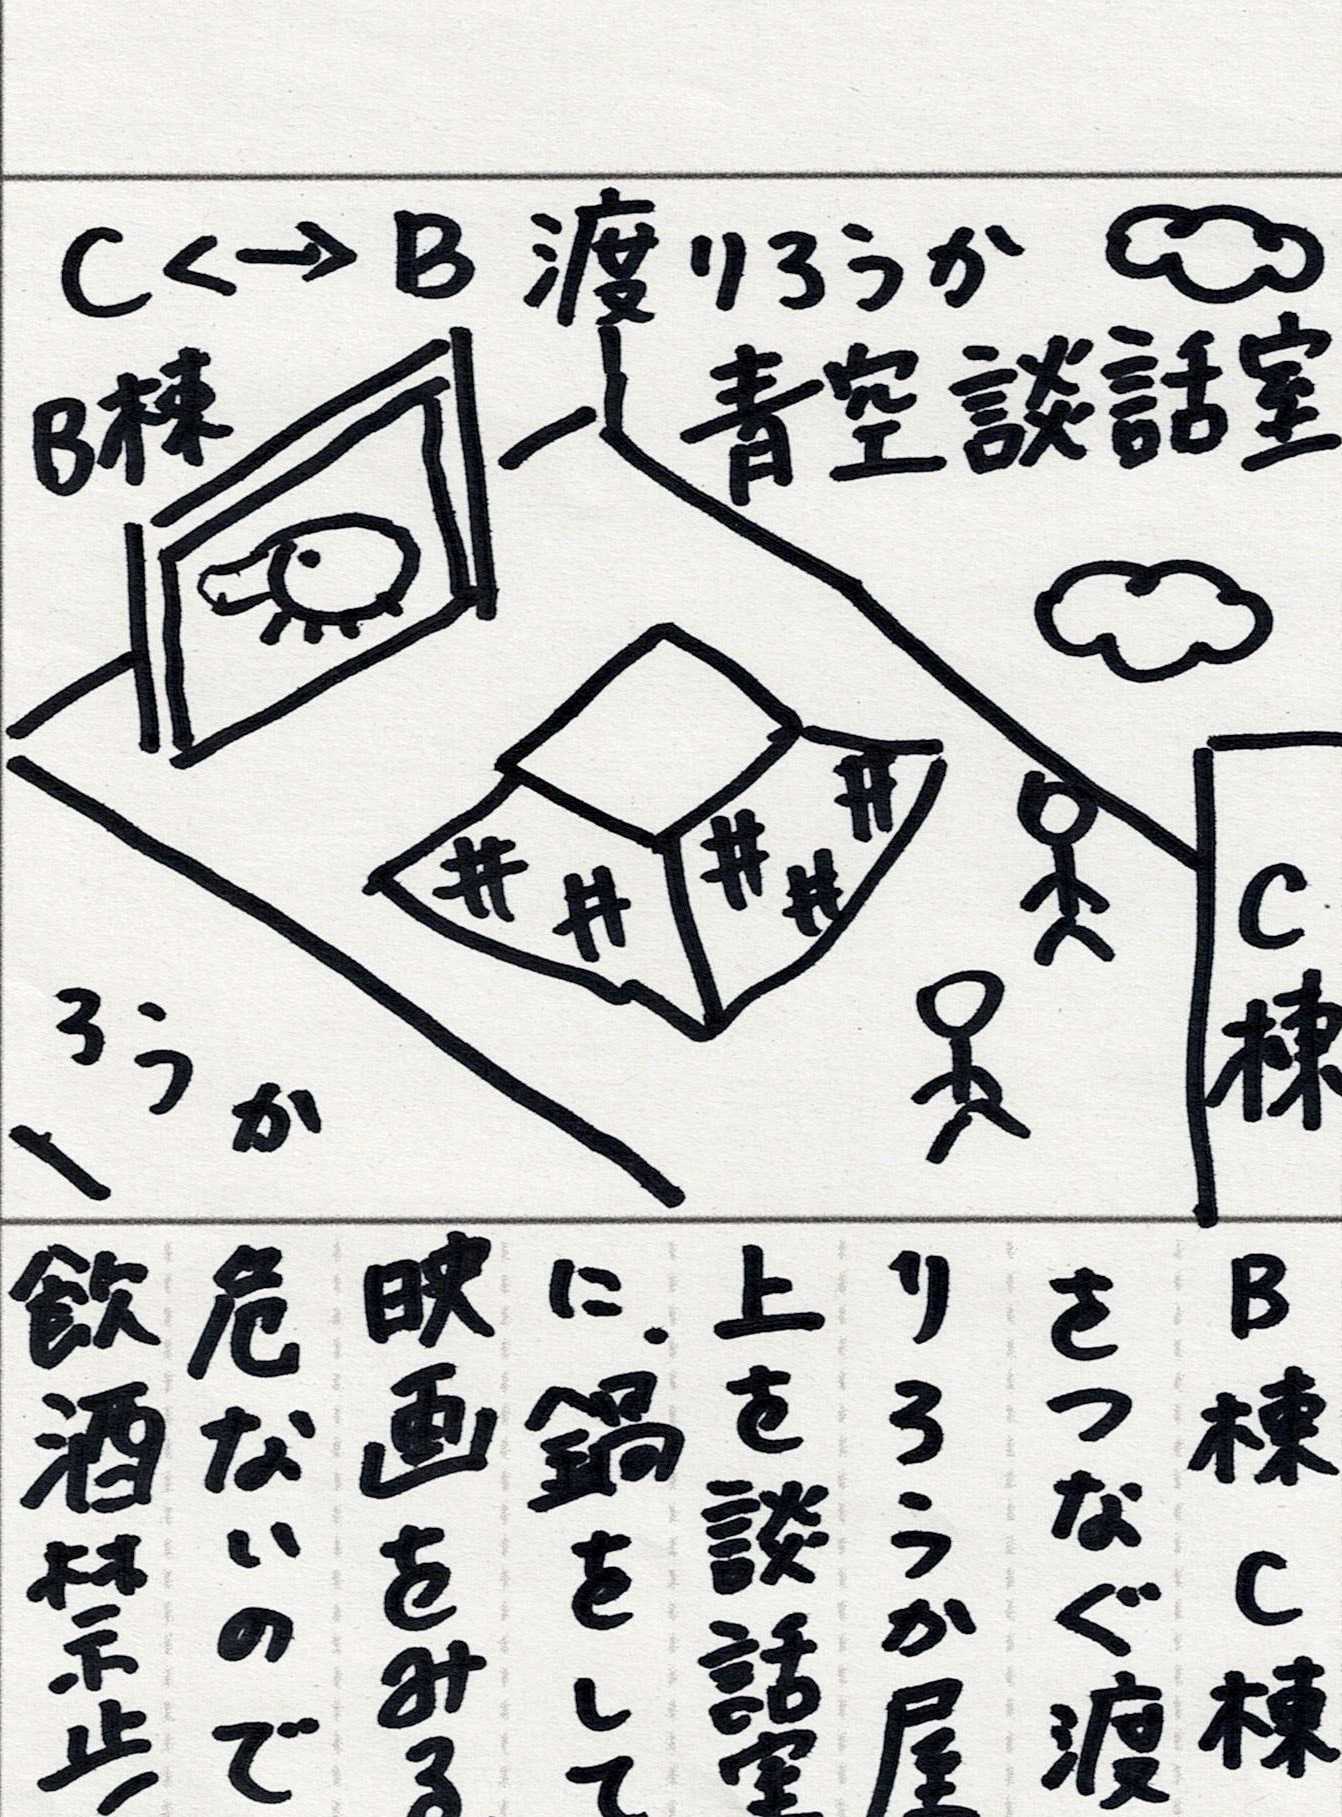 C<→B 渡りろうか
青空談話室
B棟
C棟
ろうか
B棟C棟
をつなぐ渡
りろうか屋
上を談話室
に.鍋をして
映画をみる
危ないので
飲酒禁止